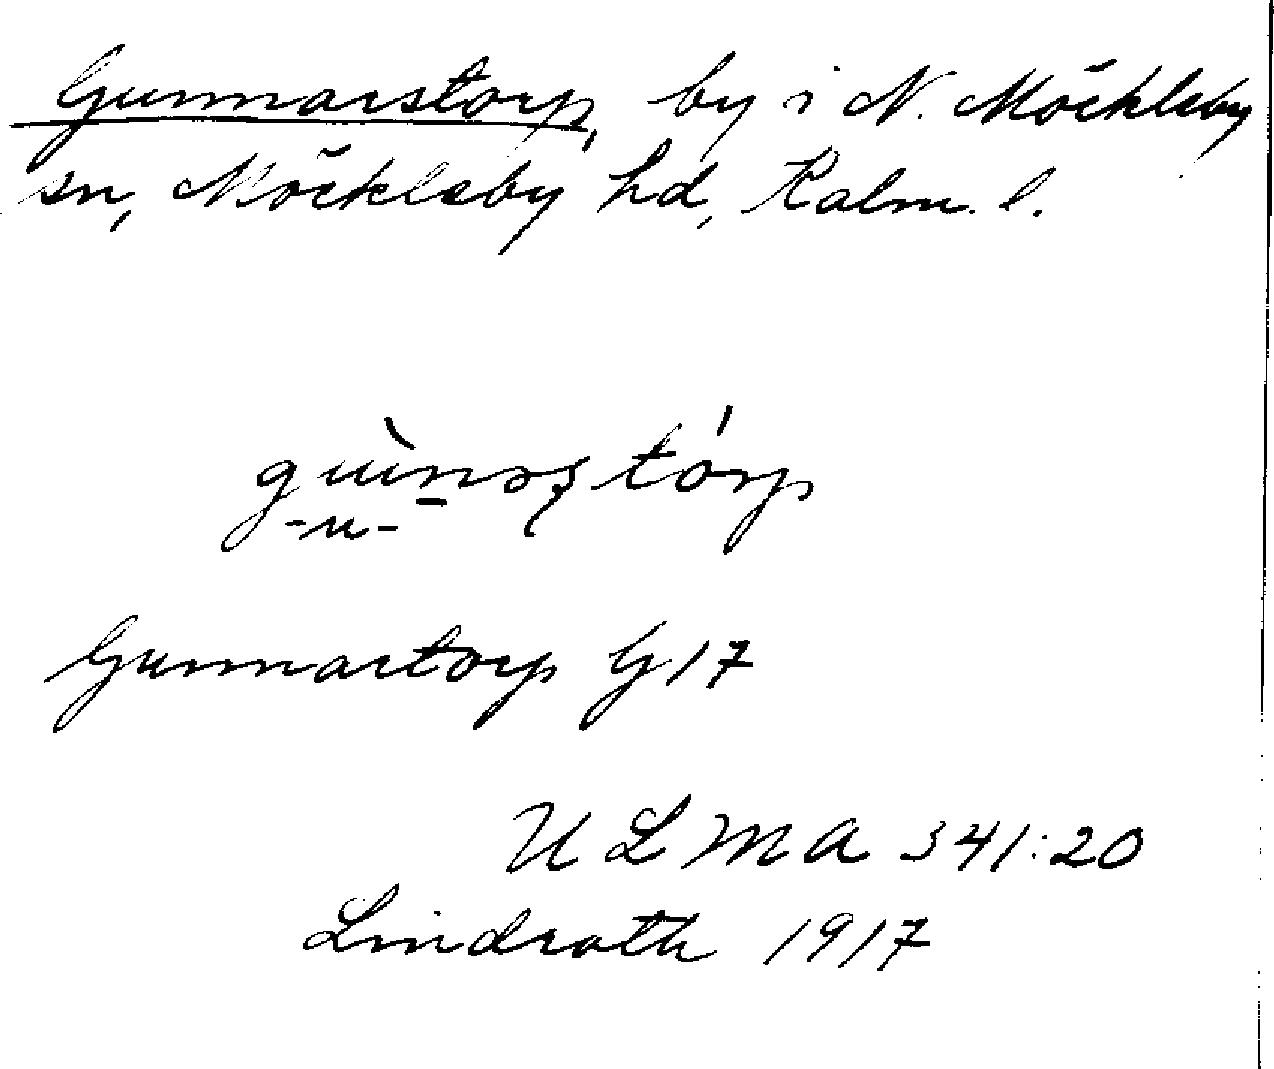 Gunnarstorp, by i N. Möckleby
sn, Möckleby hd, Kalm. l.
-u-
Gunnartorp G17
ULMA 341:20
Lindroth 1917